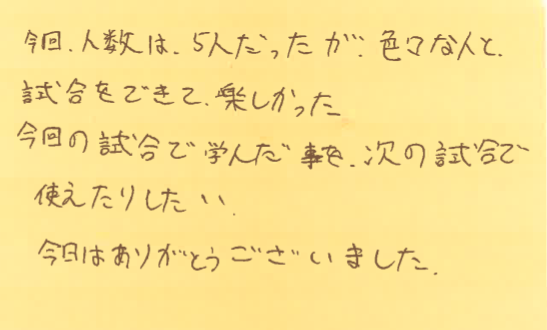 今回、人数は、5人だったが、色々な人と、
試合をできて、楽しかった
今回の試合で学んだ事を、次の試合で
使えたりしたい、
今日はありがとうございました。